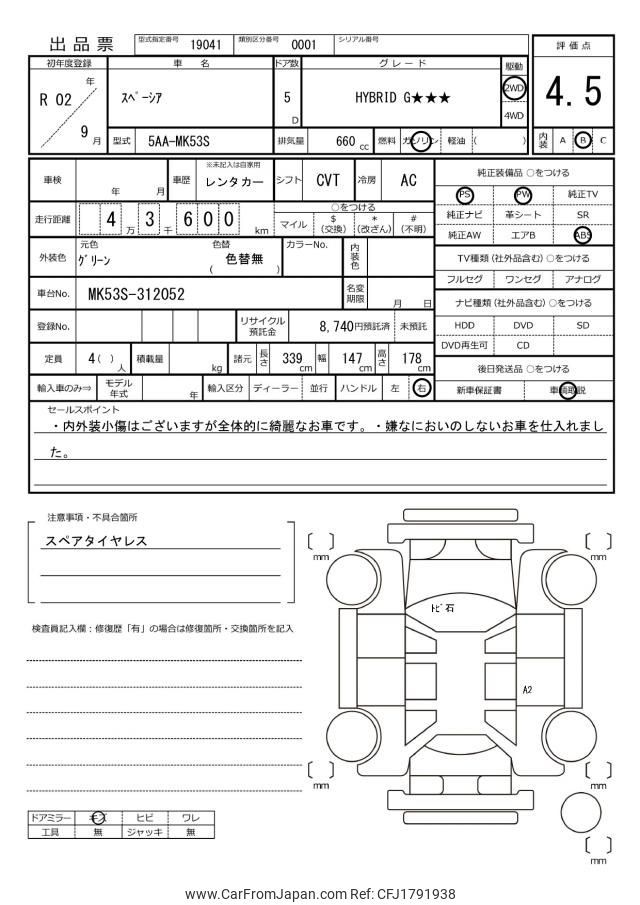 出品票 型式指定番号 19041 類別区分番号 0001 シリアル番号
評価点
4.5
内装 A B C
初年度登録 車名 ドア数 グレード 駆動
R 02 年 9 月
スペーシア 5 D HYBRID G★★★ 2WD
4WD
型式 5AA-MK53S 排気量 660 cc 燃料 ガソリン 軽油 ( )
車検 年 月 車歴 ※未記入は自家用 レンタカー シフト CVT 冷房 AC
走行距離 4 万 3 千 6 0 0 km ○をつける
マイル $ (交換) * (改ざん) # (不明)
外装色 元色 グリーン 色替 ( 色替無 ) カラーNo. 内装色
車台No. MK53S-312052 名変期限 月 日
登録No. リサイクル預託金 8,740円預託済 未預託
定員 4( ) 人 積載量 kg 諸元 長さ 339 cm 幅 147 cm 高さ 178 cm
輸入車のみ⇒ モデル年式 年 輸入区分 ディーラー 並行 ハンドル 左 右
純正装備品 ○をつける
PS PW 純正TV
純正ナビ 革シート SR
純正AW エアB ABS
TV種類 (社外品含む) ○をつける
フルセグ ワンセグ アナログ
ナビ種類 (社外品含む) ○をつける
HDD DVD SD
DVD再生可 CD
後日発送品 ○をつける
新車保証書 車輌取説
セールスポイント
・内外装小傷はございますが全体的に綺麗なお車です。・嫌なにおいのしないお車を仕入れまし
た。
注意事項・不具合箇所
スペアタイヤレス
検査員記入欄：修復歴「有」の場合は修復箇所・交換箇所を記入
mm
mm
トビ石
A2
mm
mm
mm
ドアミラー キズ ヒビ ワレ
工具 無 ジャッキ 無
www.CarFromJapan.com Ref: CFJ1791938